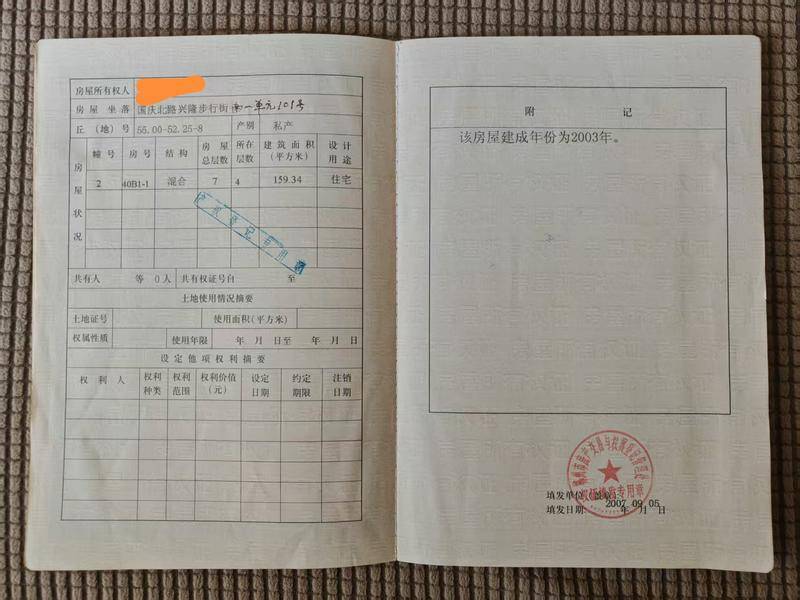 房屋所有权人
房屋 坐落 国庆北路兴隆步行街南一单元101号
丘（地）号 55.00-52.25-8 产别 私产
房屋状况
幢号 房号 结构 房屋总层数 所在层数 建筑面积（平方米） 设计用途
2 40B1-1 混合 7 4 159.34 住宅
共有人 等 0 人 共有权证号自 至
土地使用情况摘要
土地证号 使用面积（平方米）
权属性质 使用年限 年 月 日至 年 月 日
设定他项权利摘要
权利人 权利种类 权利范围 权利价值（元） 设定日期 约定期限 注销日期
附 记
该房屋建成年份为2003年。
填发单位（盖章）
填发日期： 2007 09 05 年 月 日